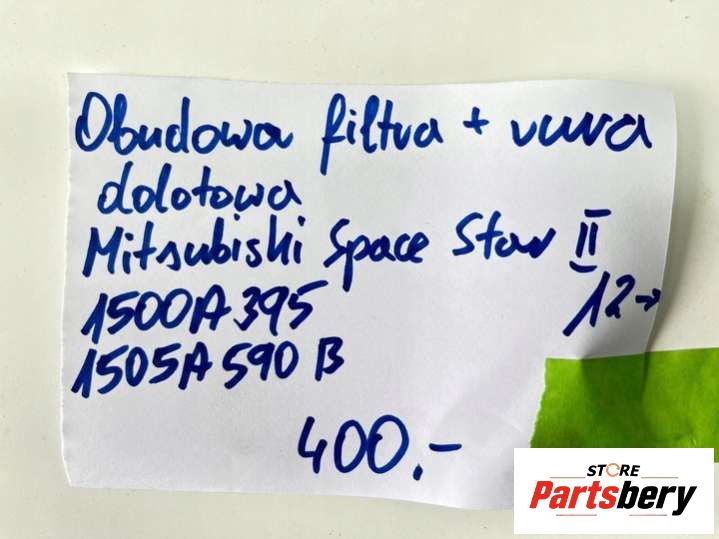 Obudowa filtra + rura
dolotowa
Mitsubishi Space Star II
12→
1500A395
1505A590 B
400.-
STORE
Partsbery